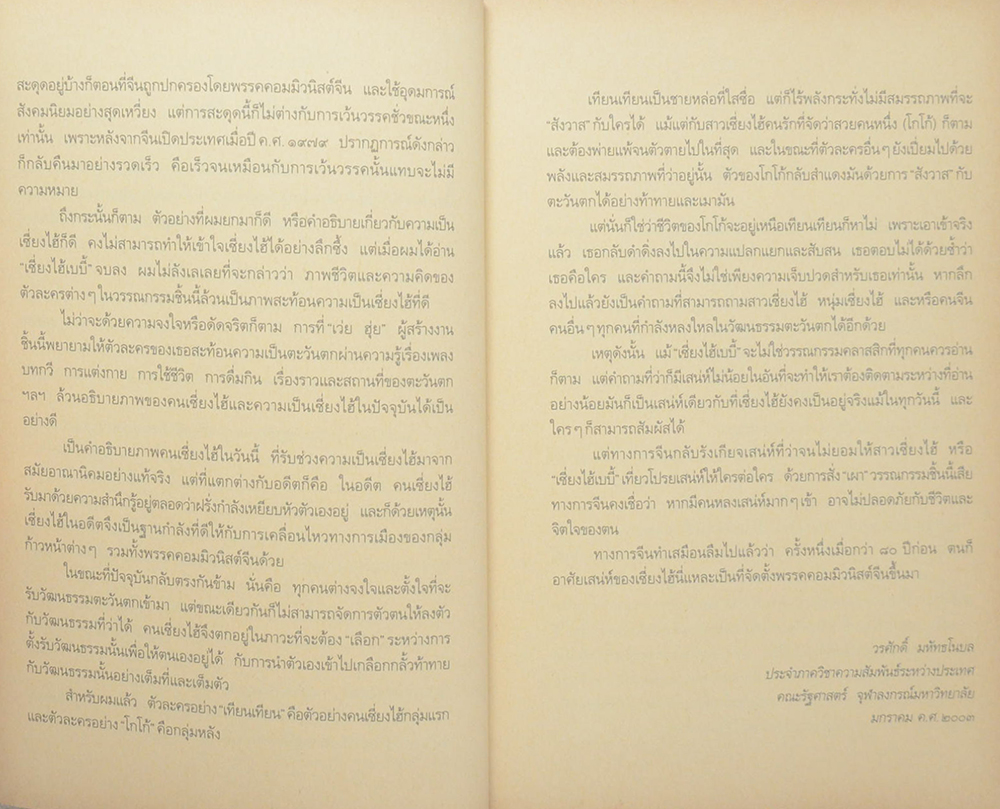 สะดุดอยู่บ้างก็ตอนที่จีนถูกปกครองโดยพรรคคอมมิวนิสต์จีน และใช้อุดมการณ์
สังคมนิยมอย่างสุดเหวี่ยง แต่การสะดุดนี้ก็ไม่ต่างกับการเว้นวรรคชั่วขณะหนึ่ง
เท่านั้น เพราะหลังจากจีนเปิดประเทศเมื่อปี ค.ศ. ๑๙๗๙ ปรากฏการณ์ดังกล่าว
ก็กลับคืนมาอย่างรวดเร็ว คือเร็วจนเหมือนกับการเว้นวรรคนั้นแทบจะไม่มี
ความหมาย
ถึงกระนั้นก็ตาม ตัวอย่างที่ผมยกมาก็ดี หรือคำอธิบายเกี่ยวกับความเป็น
เซี่ยงไฮ้ก็ดี คงไม่สามารถทำให้เข้าใจเซี่ยงไฮ้ได้อย่างลึกซึ้ง แต่เมื่อผมได้อ่าน
“เซี่ยงไฮ้เบบี้” จบลง ผมไม่ลังเลเลยที่จะกล่าวว่า ภาพชีวิตและความคิดของ
ตัวละครต่างๆ ในวรรณกรรมชิ้นนี้ล้วนเป็นภาพสะท้อนความเป็นเซี่ยงไฮ้ที่ดี
ไม่ว่าจะด้วยความจงใจหรือดัดจริตก็ตาม การที่ “เว่ย ฮุ่ย” ผู้สร้างงาน
ชิ้นนี้พยายามให้ตัวละครของเธอสะท้อนความเป็นตะวันตกผ่านความรู้เรื่องเพลง
บทกวี การแต่งกาย การใช้ชีวิต การดื่มกิน เรื่องราวและสถานที่ของตะวันตก
ฯลฯ ล้วนอธิบายภาพของคนเซี่ยงไฮ้และความเป็นเซี่ยงไฮ้ในปัจจุบันได้เป็น
อย่างดี
เป็นคำอธิบายภาพคนเซี่ยงไฮ้ในวันนี้ ที่รับช่วงความเป็นเซี่ยงไฮ้มาจาก
สมัยอาณานิคมอย่างแท้จริง แต่ที่แตกต่างกับอดีตก็คือ ในอดีต คนเซี่ยงไฮ้
รับมาด้วยความสำนึกรู้อยู่ตลอดว่าฝรั่งกำลังเหยียบหัวตัวเองอยู่ และก็ด้วยเหตุนั้น
เซี่ยงไฮ้ในอดีตจึงเป็นฐานกำลังที่ดีให้กับการเคลื่อนไหวทางการเมืองของกลุ่ม
ก้าวหน้าต่างๆ รวมทั้งพรรคคอมมิวนิสต์จีนด้วย
ในขณะที่ปัจจุบันกลับตรงกันข้าม นั่นคือ ทุกคนต่างจงใจและตั้งใจที่จะ
รับวัฒนธรรมตะวันตกเข้ามา แต่ขณะเดียวกันก็ไม่สามารถจัดการตัวตนให้ลงตัว
กับวัฒนธรรมที่ว่าได้ คนเซี่ยงไฮ้จึงตกอยู่ในภาวะที่จะต้อง “เลือก” ระหว่างการ
ตั้งรับวัฒนธรรมนั้นเพื่อให้ตนเองอยู่ได้ กับการนำตัวเองเข้าไปเกลือกกลั้วท้าทาย
กับวัฒนธรรมนั้นอย่างเต็มที่และเต็มตัว
สำหรับผมแล้ว ตัวละครอย่าง “เทียนเทียน” คือตัวอย่างคนเซี่ยงไฮ้กลุ่มแรก
และตัวละครอย่าง “โกโก้” คือกลุ่มหลัง
เทียนเทียนเป็นชายหล่อที่ใสซื่อ แต่ก็ไร้พลังกระทั่งไม่มีสมรรถภาพที่จะ
“สังวาส” กับใครได้ แม้แต่กับสาวเซี่ยงไฮ้คนรักที่จัดว่าสวยคนหนึ่ง (โกโก้) ก็ตาม
และต้องพ่ายแพ้จนตัวตายไปในที่สุด และในขณะที่ตัวละครอื่นๆ ยังเปี่ยมไปด้วย
พลังและสมรรถภาพที่ว่าอยู่นั้น ตัวของโกโก้กลับสำแดงมันด้วยการ “สังวาส” กับ
ตะวันตกได้อย่างท้าทายและเมามัน
แต่นั่นก็ใช่ว่าชีวิตของโกโก้จะอยู่เหนือเทียนเทียนก็หาไม่ เพราะเอาเข้าจริง
แล้ว เธอกลับดำดิ่งลงไปในความแปลกแยกและสับสน เธอตอบไม่ได้ด้วยซ้ำว่า
เธอคือใคร และคำถามนี้จึงไม่ใช่เพียงความเจ็บปวดสำหรับเธอเท่านั้น หากลึก
ลงไปแล้วยังเป็นคำถามที่สามารถถามสาวเซี่ยงไฮ้ หนุ่มเซี่ยงไฮ้ และหรือคนจีน
คนอื่นๆ ทุกคนที่กำลังหลงใหลในวัฒนธรรมตะวันตกได้อีกด้วย
เหตุดังนั้น แม้ “เซี่ยงไฮ้เบบี้” จะไม่ใช่วรรณกรรมคลาสสิกที่ทุกคนควรอ่าน
ก็ตาม แต่คำถามที่ว่าก็มีเสน่ห์ไม่น้อยในอันที่จะทำให้เราต้องติดตามระหว่างที่อ่าน
อย่างน้อยมันก็เป็นเสน่ห์เดียวกับที่เซี่ยงไฮ้ยังคงเป็นอยู่จริงแม้ในทุกวันนี้ และ
ใครๆ ก็สามารถสัมผัสได้
แต่ทางการจีนกลับรังเกียจเสน่ห์ที่ว่าจนไม่ยอมให้สาวเซี่ยงไฮ้ หรือ
“เซี่ยงไฮ้เบบี้” เที่ยวโปรยเสน่ห์ให้ใครต่อใคร ด้วยการสั่ง “เผา” วรรณกรรมชิ้นนี้เสีย
ทางการจีนคงเชื่อว่า หากมีคนหลงเสน่ห์มากๆ เข้า อาจไม่ปลอดภัยกับชีวิตและ
จิตใจของตน
ทางการจีนทำเสมือนลืมไปแล้วว่า ครั้งหนึ่งเมื่อกว่า ๘๐ ปีก่อน ตนก็
อาศัยเสน่ห์ของเซี่ยงไฮ้นี่แหละเป็นที่จัดตั้งพรรคคอมมิวนิสต์จีนขึ้นมา
วรศักดิ์ มหัทธโนบล
ประจำภาควิชาความสัมพันธ์ระหว่างประเทศ
คณะรัฐศาสตร์ จุฬาลงกรณ์มหาวิทยาลัย
มกราคม ค.ศ. ๒๐๐๓